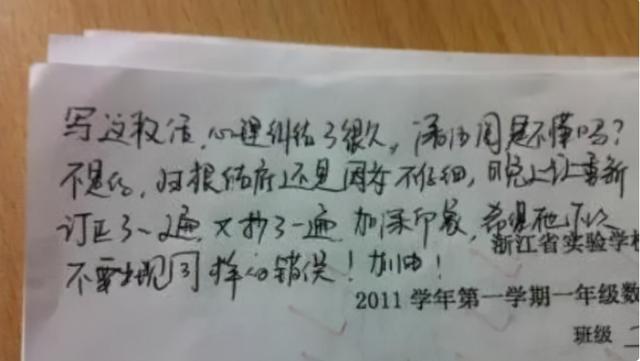 写这段话,心理纠结了很久,汤涵周是不懂吗?
不是的,归根结底还是因为不仔细,昨晚上让重新
订正了一遍,又抄了一遍,加深印象,希望他下次
不要出现同样的错误!加油!
浙江省实验学校
2011 学年第一学期一年级数
班级 二